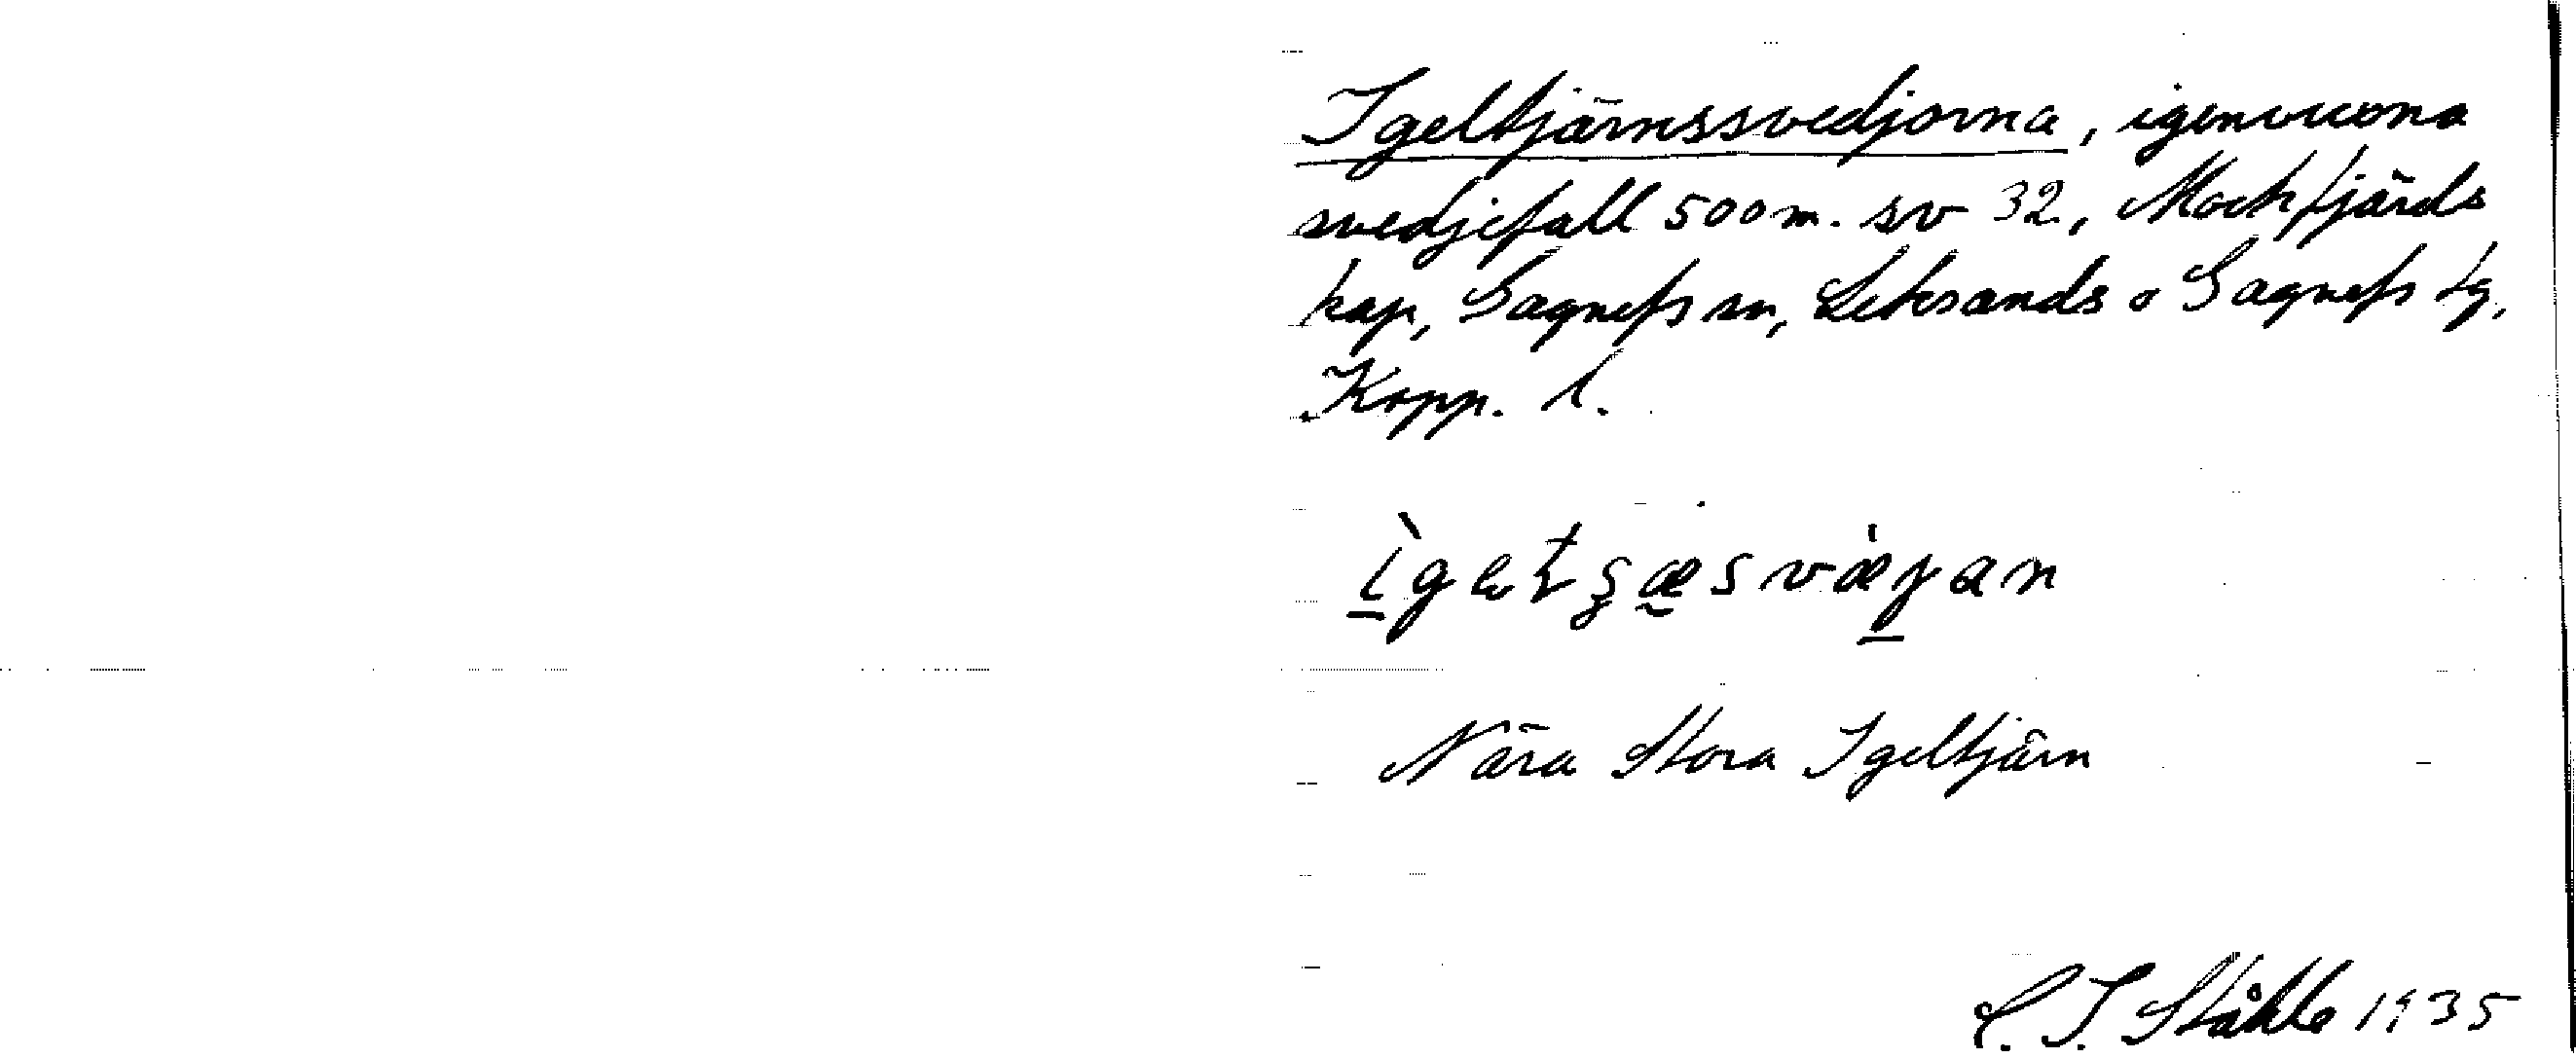 Igeltjärnssvedjorna, igenvuxna
svedjefall 500 m. sv 32, Mockfjärds
kap, Gagnefs sn, Leksands o Gagnefs tg,
Kopp. l.
Nära Stora Igeltjärn
C. I. Ståhle 1935